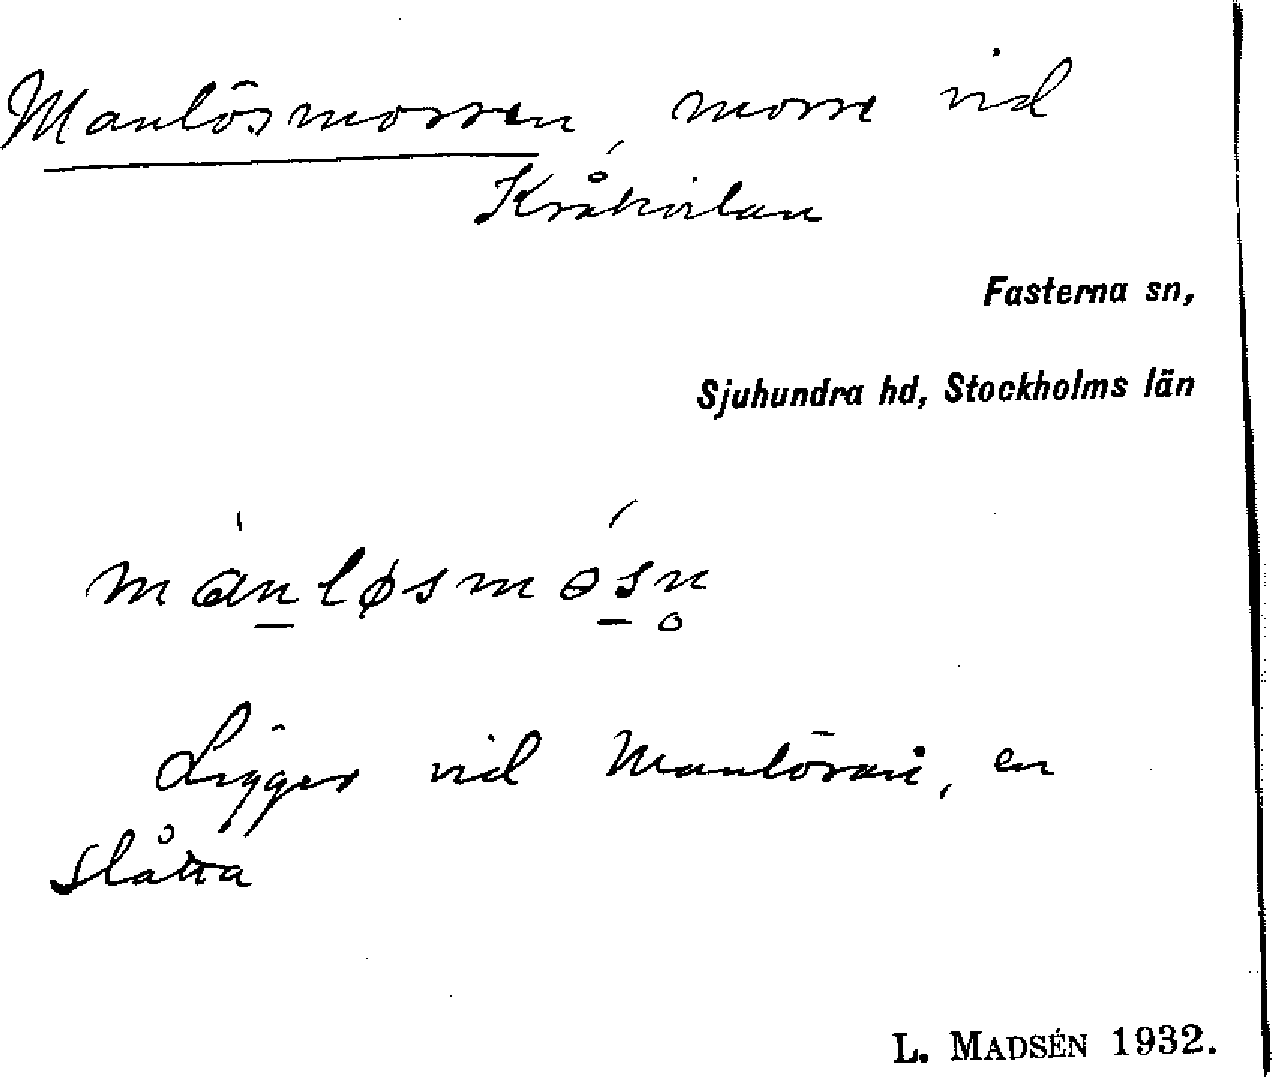 Manlösmossen, mosse vid
Kråkvilan
Fasterna sn,
Sjuhundra hd, Stockholms län
mànløsmósn̥
Ligger vid
en
slåtta
L. MADSÉN 1932.